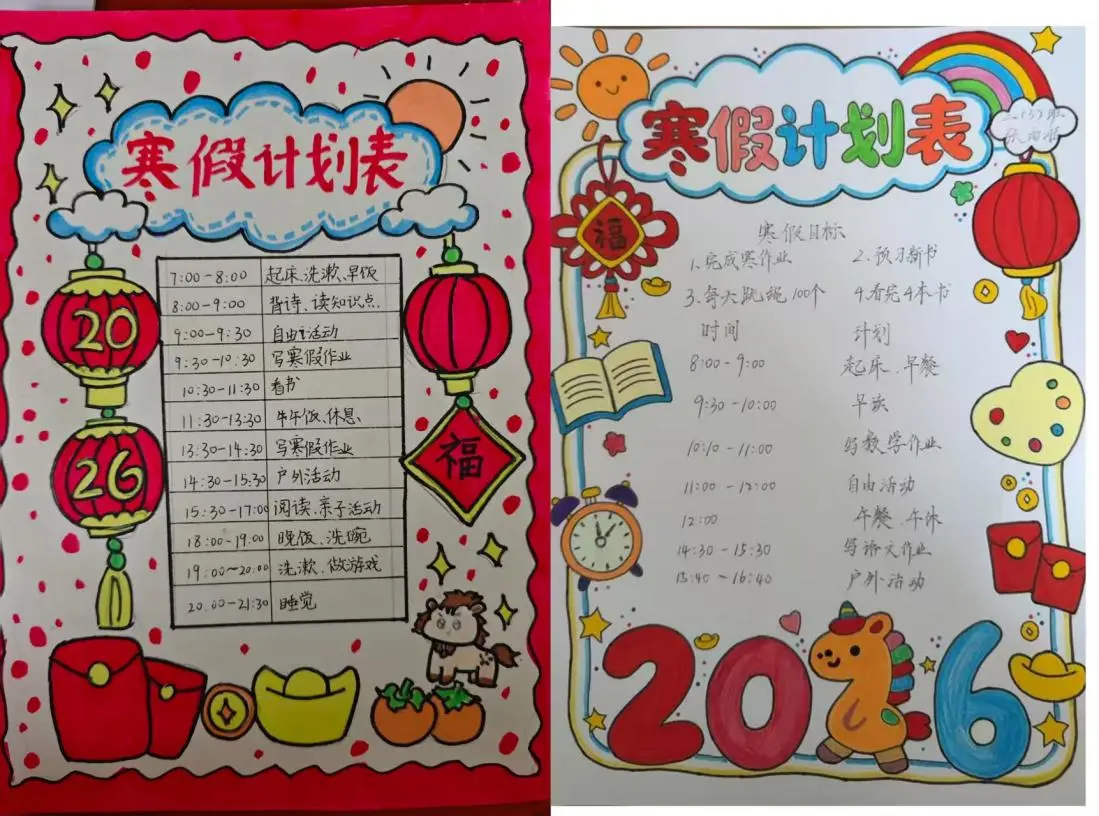 寒假计划表
20
26
福
7:00-8:00 起床、洗漱、早饭
8:00-9:00 背诗、读知识点
9:00-9:30 自由活动
9:30-10:30 写寒假作业
10:30-11:30 看书
11:30-13:30 午饭、休息
13:30-14:30 写寒假作业
14:30-15:30 户外活动
15:30-17:00 阅读、亲子活动
18:00-19:00 晚饭、洗碗
19:00~20:00 洗漱、做游戏
20:00-21:30 睡觉
寒假计划表
福
寒假目标
1.完成寒作业 2.预习新书
3.每天跳绳100个 4.看完4本书
时间 计划
8:00-9:00 起床、早餐
9:30-10:00 早读
10:10-11:00 写数学作业
11:00-12:00 自由活动
12:00 午餐、午休
14:30-15:30 写语文作业
15:40-16:40 户外活动
2026